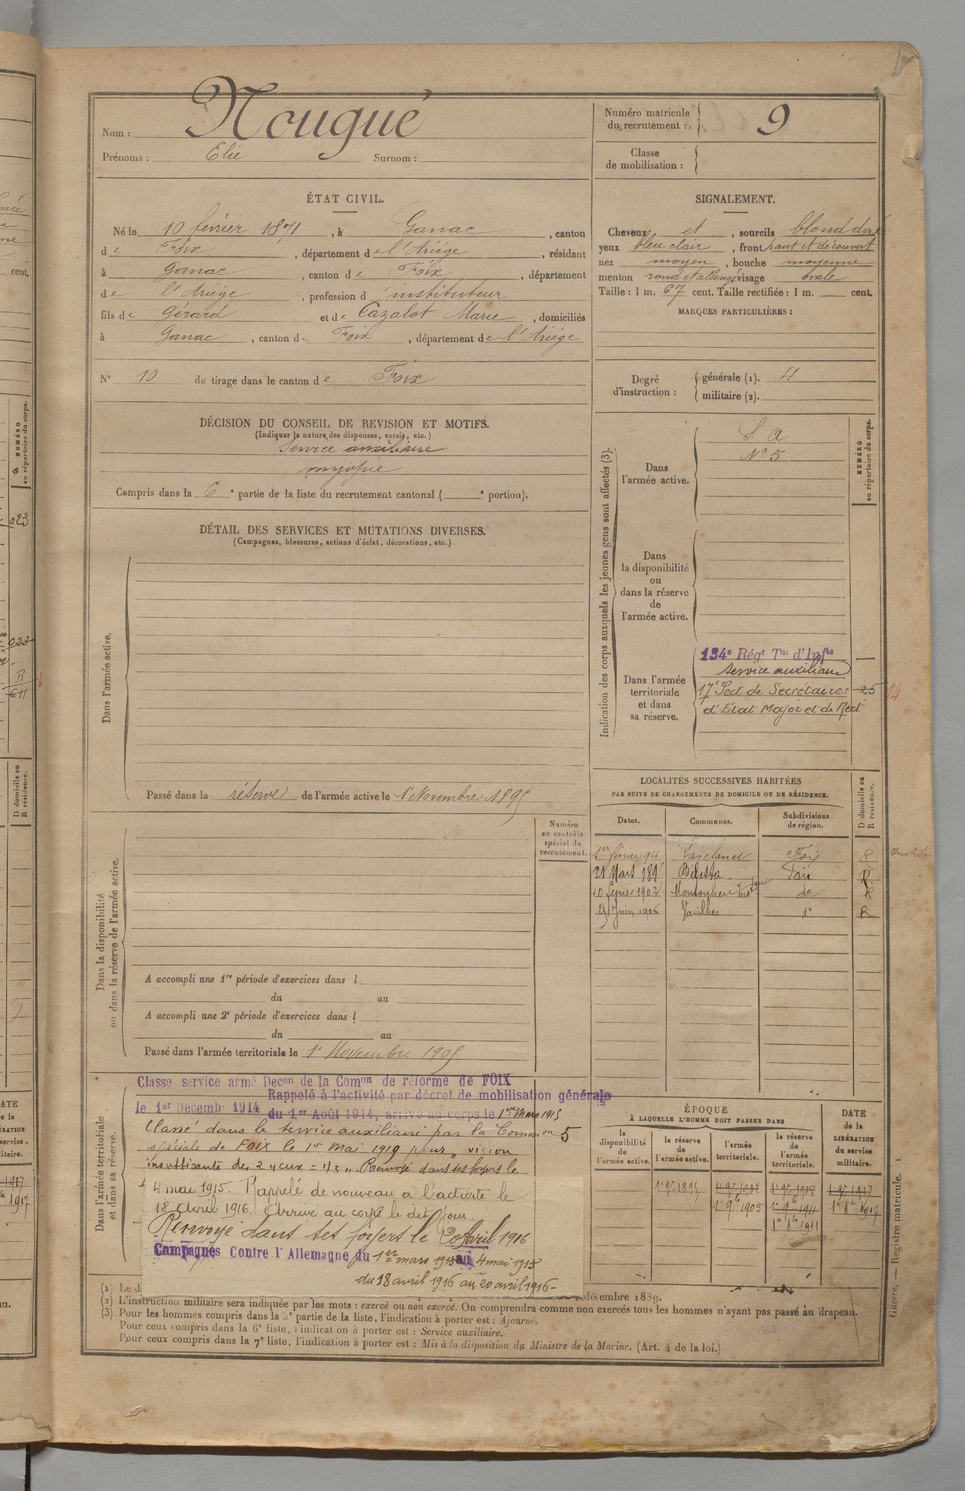 Nom : Nougué
Prénoms : Elie Surnom :
Numéro matricule du recrutement : 9
Classe de mobilisation :
ÉTAT CIVIL.
Né le 10 février 1871, à Ganac, canton
de Foix, département de l'Ariège, résidant
à Ganac, canton de Foix, département
de l'Ariège, profession d'instituteur
fils de Gérard et de Cazalot Marie, domiciliés
à Ganac, canton de Foix, département de l'Ariège
N° 10 de tirage dans le canton de Foix
SIGNALEMENT.
Cheveux et, sourcils blond
yeux bleu clair, front haut et découvert
nez moyen, bouche moyenne
menton rond et allongé visage ovale
Taille : 1 m. 67 cent. Taille rectifiée : 1 m. cent.
MARQUES PARTICULIÈRES :
Degré d'instruction : générale (1). 4
militaire (2).
DÉCISION DU CONSEIL DE REVISION ET MOTIFS.
(Indiquer la nature des dispenses, sursis, etc.)
Service auxiliaire
myopie
Compris dans la 6e partie de la liste du recrutement cantonal ( e portion).
DÉTAIL DES SERVICES ET MUTATIONS DIVERSES.
(Campagnes, blessures, actions d'éclat, décorations, etc.)
Dans l'armée active.
Passé dans la réserve de l'armée active le 1 Novembre 1895
Indication des corps auxquels les jeunes gens sont affectés (3).
NUMÉRO au répertoire du corps.
Dans l'armée active.
S. A.
N° 5
Dans la disponibilité ou dans la réserve de l'armée active.
Dans l'armée territoriale et dans sa réserve.
134e Régt Tal d'Inf
Service auxiliaire
17e Sect de Secrétaires 25 14
d'Etat Major et de Rect
LOCALITÉS SUCCESSIVES HABITÉES
PAR SUITE DE CHANGEMENTS DE DOMICILE OU DE RÉSIDENCE.
D domicile ou R résidence.
Dates. Communes. Subdivisions de région.
1er février 94 Lavelanet Foix R
21 Mars 189 Bélesta Foix R
10 février 1902 do R
Juin 1906 Varilhes R
Numéro au contrôle spécial du recrutement.
Dans la disponibilité ou dans la réserve de l'armée active.
A accompli une 1re période d'exercices dans l
du au
A accompli une 2e période d'exercices dans l
du au
Passé dans l'armée territoriale le 1r Novembre 1905
Dans l'armée territoriale et dans sa réserve.
Classe service armé Décon de la Comon de réforme de FOIX
Rappelé à l'activité par décret de mobilisation générale
le 1er Décemb 1914 du 1er Août 1914, arrivé au corps le 1er Mars 1915
Classé dans le service auxiliaire par la Common 5
spéciale de FOIX le 1er mai 1919 pour "vision
insuffisante des 2 yeux = 1/3". Renvoyé dans ses foyers le
4 mai 1915. Rappelé de nouveau à l'activité le
18 avril 1916. Arrivé au corps le dit jour.
Renvoyé dans ses foyers le 20 Avril 1916
Campagnes Contre l'Allemagne du 1er mars 1915 au 4 mai 1915
du 18 avril 1916 au 20 avril 1916-
ÉPOQUE
À LAQUELLE L'HOMME DOIT PASSER DANS
la disponibilité de l'armée active. la réserve de l'armée active. l'armée territoriale. la réserve de l'armée territoriale.
DATE de la LIBÉRATION du service militaire.
1 9bre 1895 1 9bre 1908 1 9bre 1917
1r 9b 1905 1r 9b 1911 1917
1911
(1) Le d décembre 1889.
(2) L'instruction militaire sera indiquée par les mots : exercé ou non exercé. On comprendra comme non exercés tous les hommes n'ayant pas passé au drapeau.
(3) Pour les hommes compris dans la 5e partie de la liste, l'indication à porter est : Ajourné.
Pour ceux compris dans la 6e liste, l'indication à porter est : Service auxiliaire.
Pour ceux compris dans la 7e liste, l'indication à porter est : Mis à la disposition du Ministre de la Marine. (Art. 4 de la loi.)
Guerre. — Registre matricule. 1